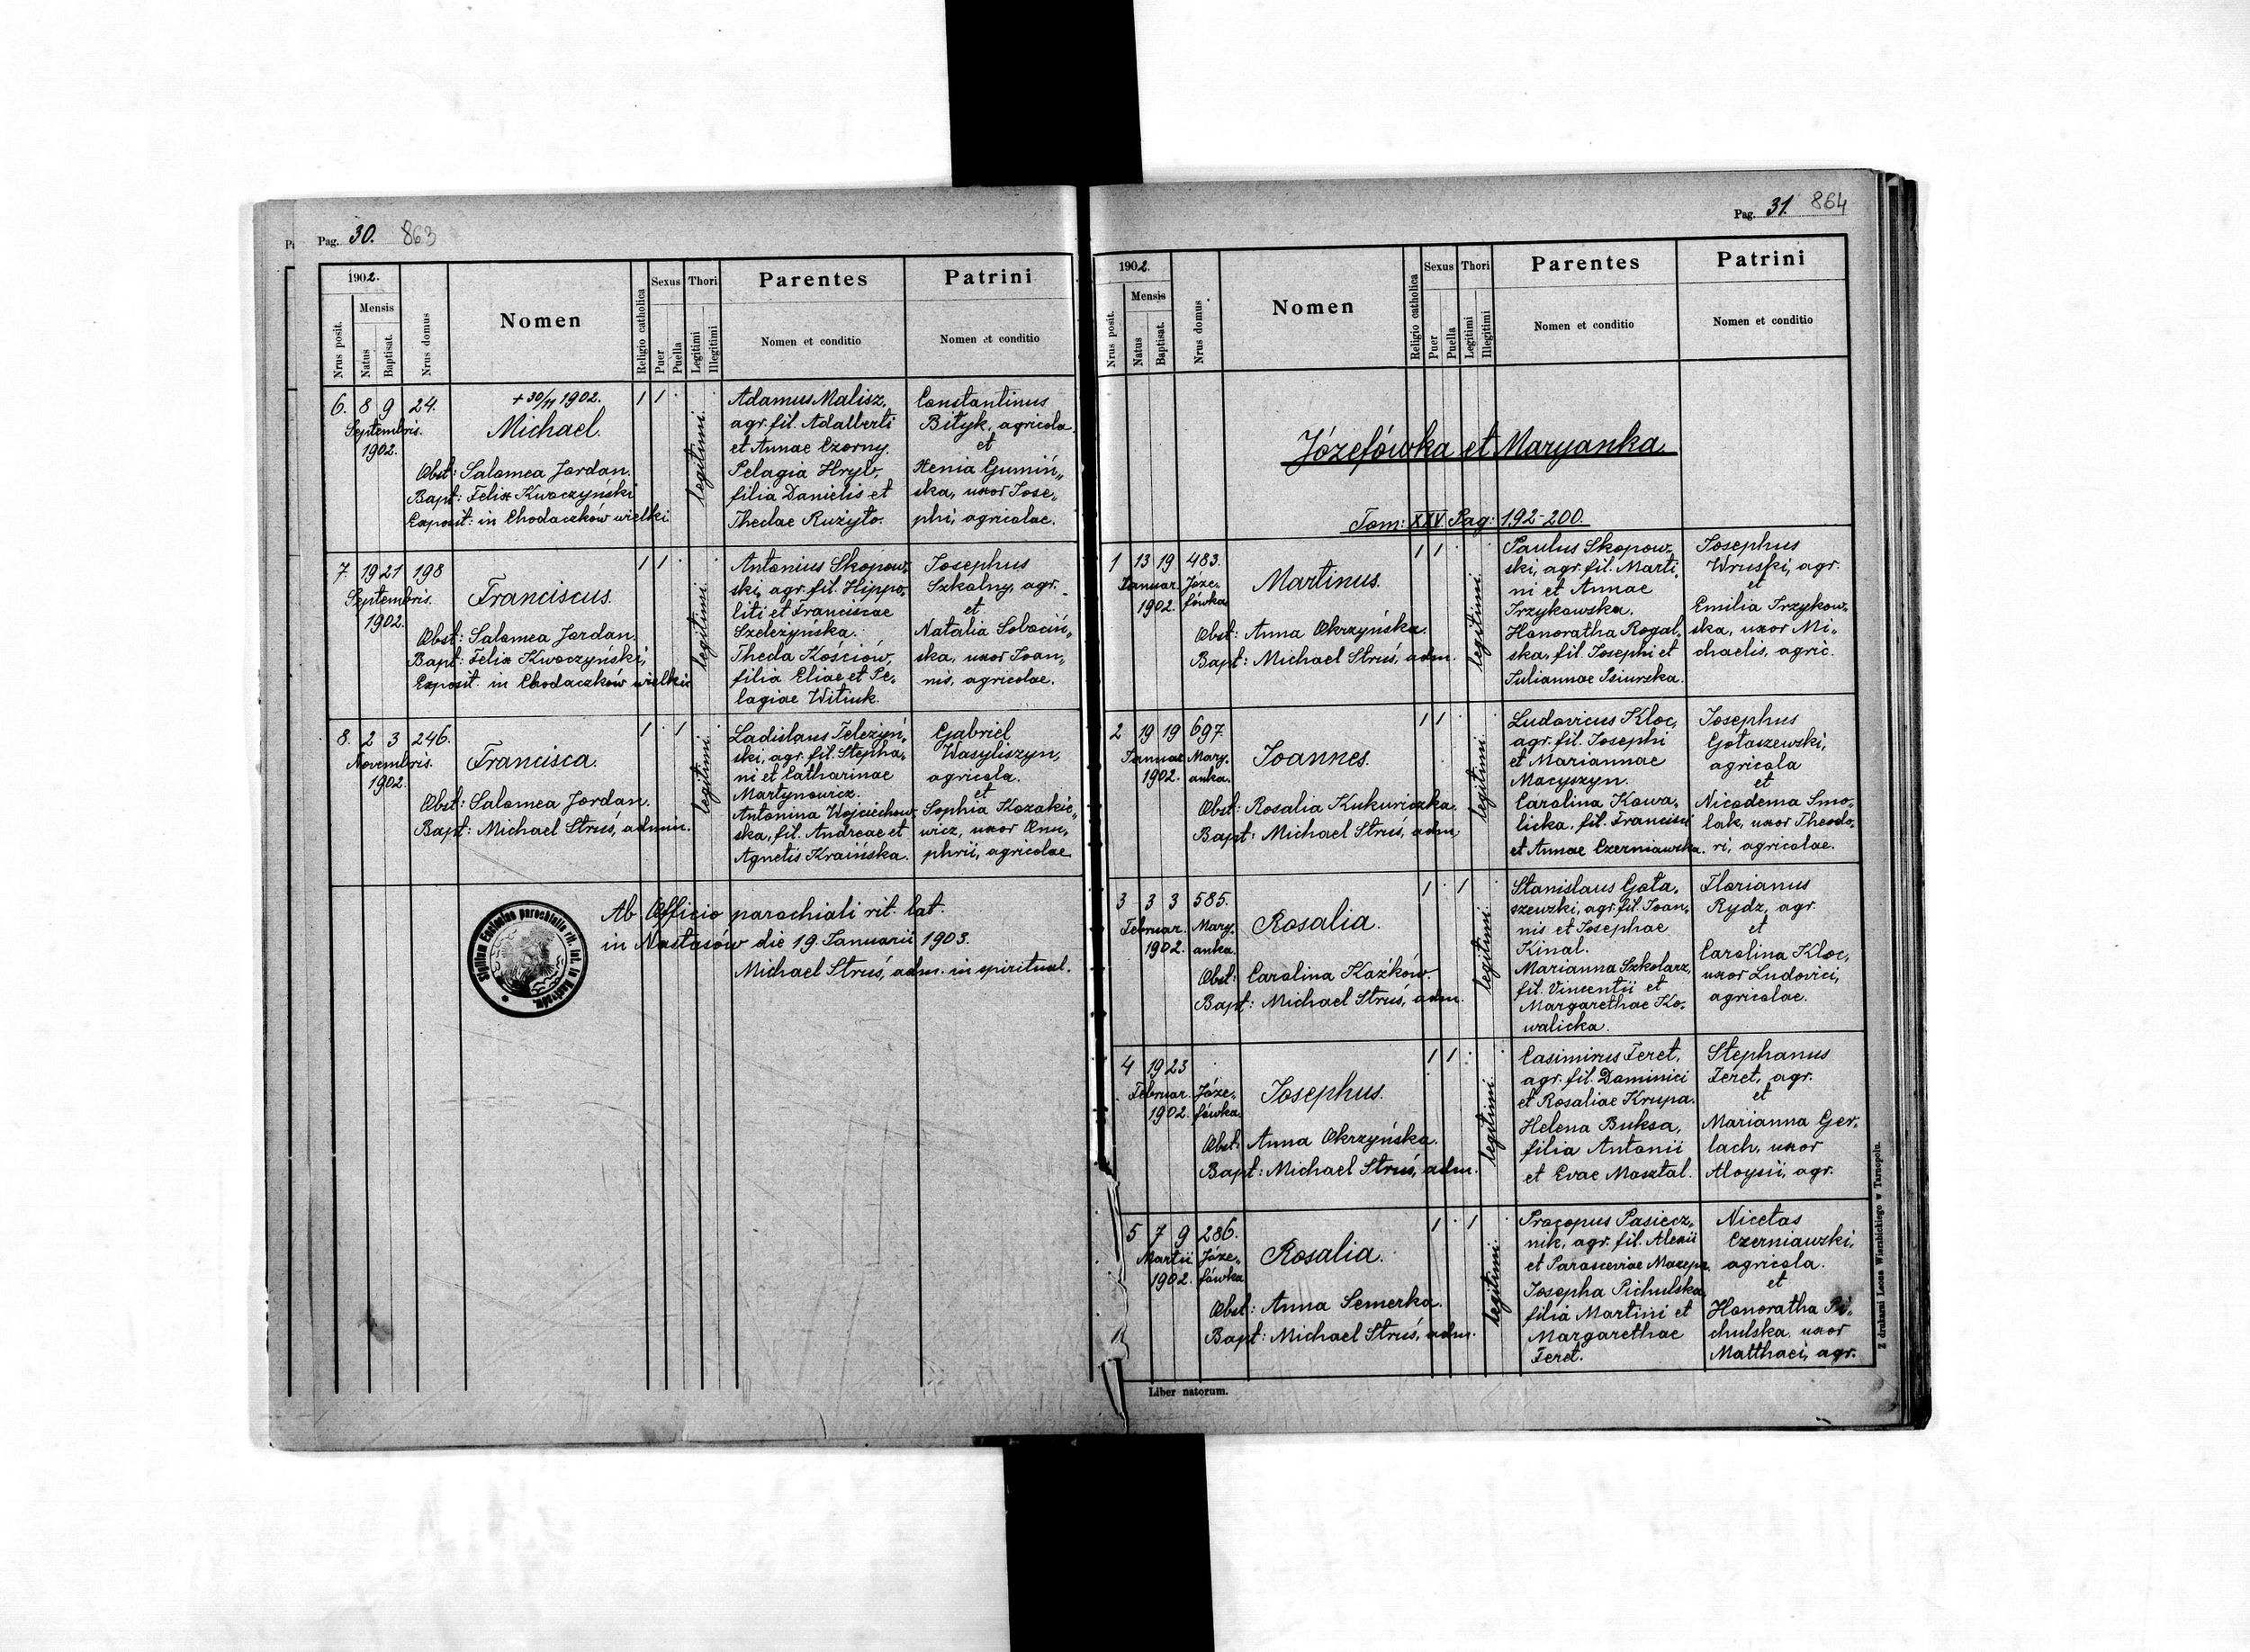 Pag. 30. 863
1902.
Nrus posit.
Mensis
Natus
Baptisat.
Nrus domus
Nomen
Religio catholica
Sexus
Puer
Puella
Thori
Legitimi
Illegitimi
Parentes
Nomen et conditio
Patrini
Nomen et conditio
6. 8 9 24.
Septembris.
1902.
+ 30/11 1902.
Michael.
Obst: Salomea Jordan.
Bapt: Felix Kwoczyński
Exposit: in Chodaczków wielki
1 1
legitimi.
Adamus Malisz,
agr. fil. Adalberti
et Annae Czorny.
Pelagia Hryb,
filia Danielis et
Theclae Rużyło.
Constantinus
Bityk, agricola
et
Xenia Gumiń„
ska, uxor Jose„
phi, agricolae.
7. 19 21 198
Septembris.
1902.
Franciscus.
Obst: Salomea Jordan.
Bapt: Felix Kwoczyński,
Exposit. in Chodaczków wielki
1 1
legitimi.
Antonius Skopow„
ski, agr. fil. Hippo„
liti et Franciscae
Szeleżyńska.
Thecla Kościów,
filia Eliae et Pe„
lagiae Witiuk.
Josephus
Szkolny, agr.
et
Natalia Sobociń„
ska, uxor Joan„
nis, agricolae.
8. 2 3 246.
Novembris.
1902.
Francisca.
Obst: Salomea Jordan.
Bapt: Michael Struś, admin.
1 1
legitimi.
Ladislaus Teleżyń„
ski, agr. fil. Stepha„
ni et Catharinae
Martynowicz.
Antonina Wojciechow„
ska, fil. Andreae et
Agnetis Kraińska.
Gabriel
Wasyliszyn,
agricola.
et
Sophia Kozakie„
wicz, uxor Onu„
phrii, agricolae
Ab Officio parochiali rit. lat.
in Nastasów die 19. Januarii 1903.
Michael Struś, adm. in spiritual.
Pag. 31. 864
1902.
Nrus posit.
Mensis
Natus
Baptisat.
Nrus domus
Nomen
Religio catholica
Sexus
Puer
Puella
Thori
Legitimi
Illegitimi
Parentes
Nomen et conditio
Patrini
Nomen et conditio
Józefówka et Maryanka.
Tom: XXV. Pag: 192-200.
1 13 19 483.
Januar. Józe„
1902. fówka
Martinus.
Obst: Anna Okrzyńska.
Bapt: Michael Struś, adm.
1 1
legitimi.
Paulus Skopow„
ski, agr. fil. Marti„
ni et Annae
Trzykowska.
Honoratha Rogal„
ska, fil. Josephi et
Juliannae Psiurska.
Josephus
Wruski, agr.
et
Emilia Trzykow„
ska, uxor Mi„
chaelis, agric.
2 19 19 697.
Januar. Mary„
1902. anka.
Joannes.
Obst: Rosalia Kukuriczka.
Bapt: Michael Struś, adm.
1 1
legitimi.
Ludovicus Kloc,
agr. fil. Josephi
et Mariannae
Macyszyn.
Carolina Kowa„
licka, fil. Francisci
et Annae Czerniawska.
Josephus
Gołaszewski,
agricola
et
Nicodema Smo„
lak, uxor Theodo„
ri, agricolae.
3 3 3 585.
Februar. Mary„
1902. anka.
Rosalia.
Obst: Carolina Kaźków.
Bapt: Michael Struś, adm.
1 1
legitimi.
Stanislaus Goła„
szewski, agr. fil. Joan„
nis et Josephae
Kinal.
Marianna Szkolarz,
fil. Vincentii et
Margarethae Ko„
walicka.
Florianus
Rydz, agr.
et
Carolina Kloc,
uxor Ludovici,
agricolae.
4 19 23
Februar. Józe„
1902. fówka.
Josephus.
Obst: Anna Okrzyńska.
Bapt: Michael Struś, adm.
1 1
legitimi.
Casimirus Feret,
agr. fil. Dominici
et Rosaliae Krupa.
Helena Buksa,
filia Antonii
et Evae Masztal.
Stephanus
Feret, agr.
et
Marianna Ger„
lach, uxor
Aloysii, agr.
5 7 9 286.
Martii Józe„
1902. fówka
Rosalia.
Obst: Anna Semerka.
Bapt: Michael Struś, adm.
1 1
legitimi.
Procopus Pasiecz„
nik, agr. fil. Alexii
et Parasceviae Macepa.
Josepha Pichulska,
filia Martini et
Margarethae
Feret.
Nicetas
Czerniawski,
agricola.
et
Honoratha Pi„
chulska, uxor
Matthaei, agr.
Liber natorum.
Z drukarni Leona Wierzbickiego w Tarnopolu.